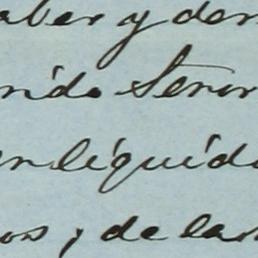 aber y der
rido Senor
en liquido
os, de las